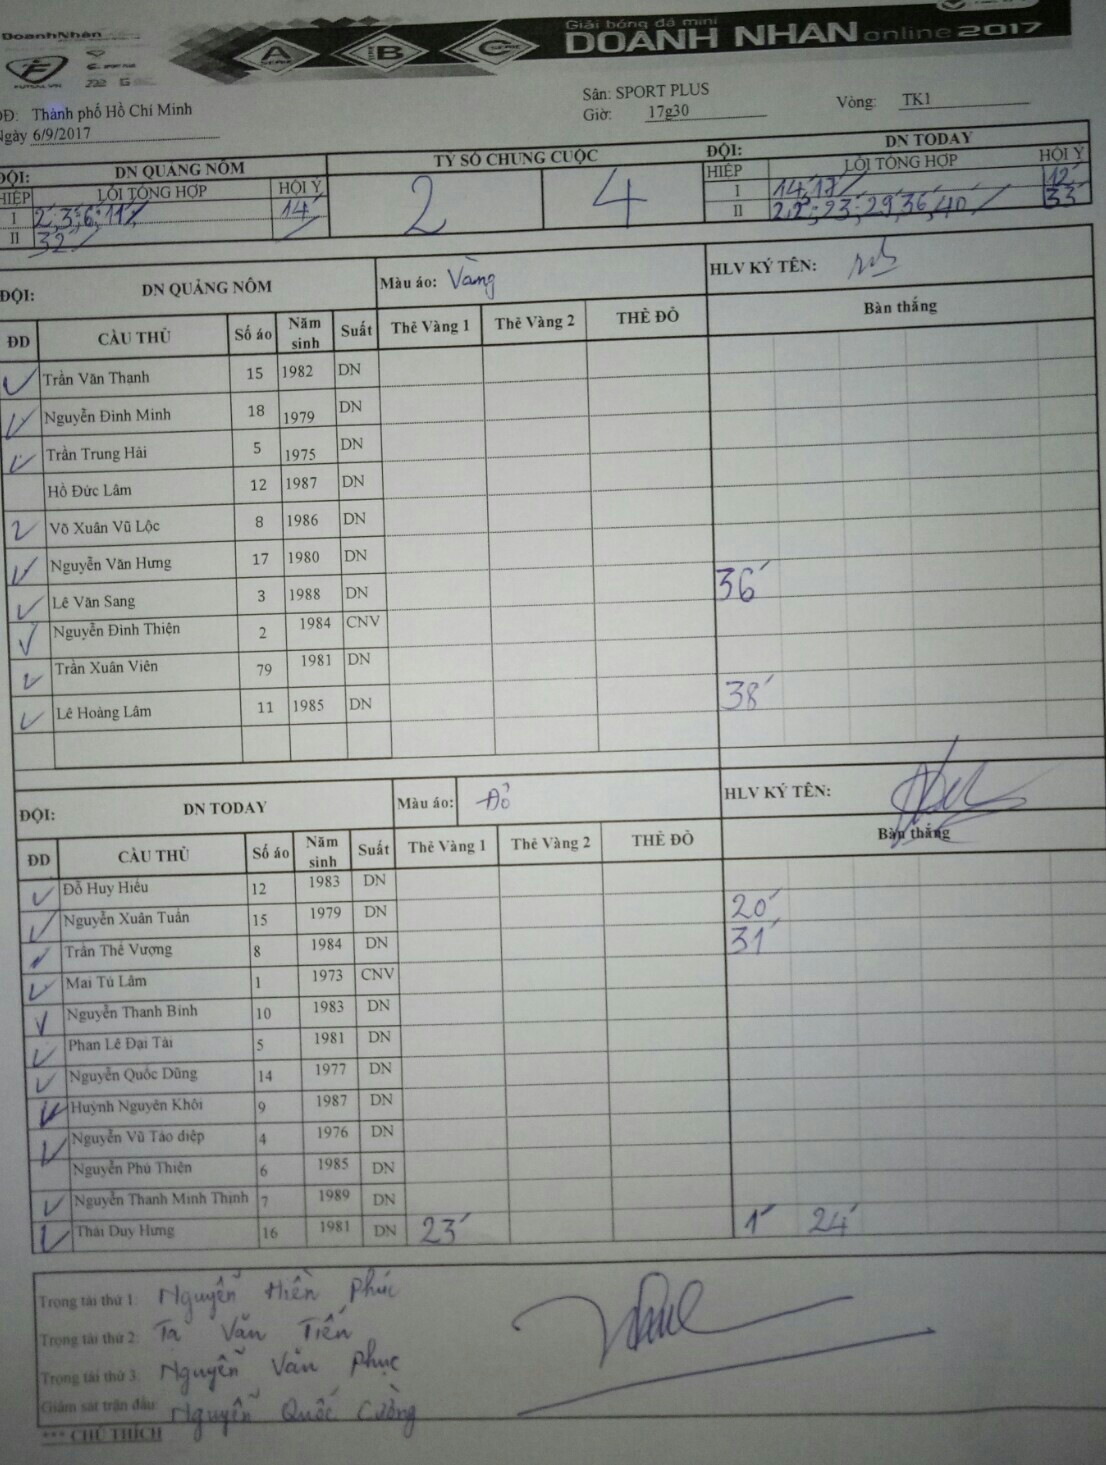 DoanhNhân
FUTSAL.VN
A SERIE
B SERIE
C SERIE
Giải bóng đá mini
DOANH NHAN online 2017
DĐ: Thành phố Hồ Chí Minh
Ngày 6/9/2017
Sân: SPORT PLUS
Giờ: 17g30
Vòng: TK1
ĐỘI: DN QUẢNG NÔM TỶ SỐ CHUNG CUỘC ĐỘI: DN TODAY
HIỆP LỖI TỔNG HỢP HỘI Ý 2 4 HIỆP LỖI TỔNG HỢP HỘI Ý
I 2'; 3'; 6'; 11' 14' I 14' 17' 12'
II 32' II 22'; 23'; 29', 36', 40' 33'
ĐỘI: DN QUẢNG NÔM Màu áo: Vàng HLV KÝ TÊN:
ĐD CẦU THỦ Số áo Năm sinh Suất Thẻ Vàng 1 Thẻ Vàng 2 THẺ ĐỎ Bàn thắng
Trần Văn Thạnh 15 1982 DN
Nguyễn Đình Minh 18 1979 DN
Trần Trung Hải 5 1975 DN
Hồ Đức Lâm 12 1987 DN
Võ Xuân Vũ Lộc 8 1986 DN
Nguyễn Văn Hưng 17 1980 DN
Lê Văn Sang 3 1988 DN 36'
Nguyễn Đình Thiện 2 1984 CNV
Trần Xuân Viên 79 1981 DN
Lê Hoàng Lâm 11 1985 DN 38'
ĐỘI: DN TODAY Màu áo: Đỏ HLV KÝ TÊN:
ĐD CẦU THỦ Số áo Năm sinh Suất Thẻ Vàng 1 Thẻ Vàng 2 THẺ ĐỎ Bàn thắng
Đỗ Huy Hiếu 12 1983 DN
Nguyễn Xuân Tuấn 15 1979 DN 20'
Trần Thế Vượng 8 1984 DN 31'
Mai Tú Lâm 1 1973 CNV
Nguyễn Thanh Bình 10 1983 DN
Phan Lê Đại Tài 5 1981 DN
Nguyễn Quốc Dũng 14 1977 DN
Huỳnh Nguyên Khôi 9 1987 DN
Nguyễn Vũ Táo điệp 4 1976 DN
Nguyễn Phú Thiên 6 1985 DN
Nguyễn Thanh Minh Thịnh 7 1989 DN
Thái Duy Hưng 16 1981 DN 23' 1' 24'
Trọng tài thứ 1: Nguyễn Hiền Phúc
Trọng tài thứ 2: Tạ Văn Tiến
Trọng tài thứ 3: Nguyễn Văn Phục
Giám sát trận đấu: Nguyễn Quốc Cường
*** CHÚ THÍCH